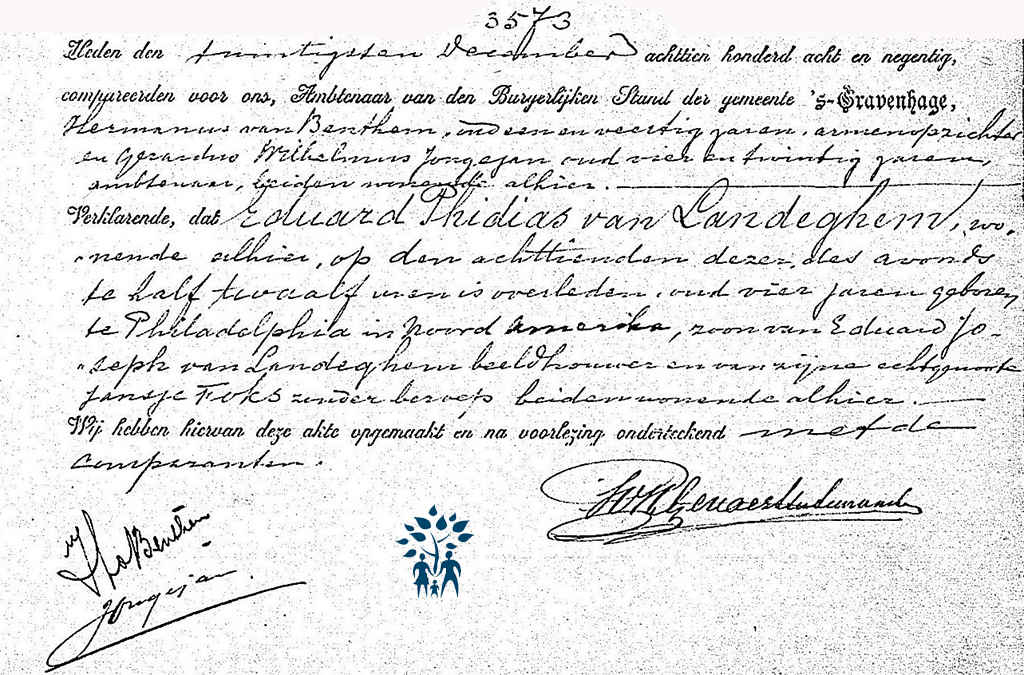 3573
Heden den twintigsten December achttien honderd acht en negentig,
compareerden voor ons, Ambtenaar van den Burgerlijken Stand der gemeente 's-Gravenhage,
Hermanus van Benthem, oud een en veertig jaren, armenopzichter
en Gerardus Wilhelmus Jongejan oud vier en twintig jaren,
ambtenaar, beiden wonende alhier.
Verklarende, dat Eduard Phidias van Landeghem, wo-
nende alhier, op den achttienden dezer, des avonds
te half twaalf uren is overleden, oud vier jaren geboren
te Philadelphia in Noord Amerika, zoon van Eduard Jo-
seph van Landeghem beeldhouwer en van zijne echtgenoote
Jansje Foks zonder beroep beiden wonende alhier.
Wij hebben hiervan deze akte opgemaakt en na voorlezing onderteekend met de
comparanten.
Benthem
Jongejan